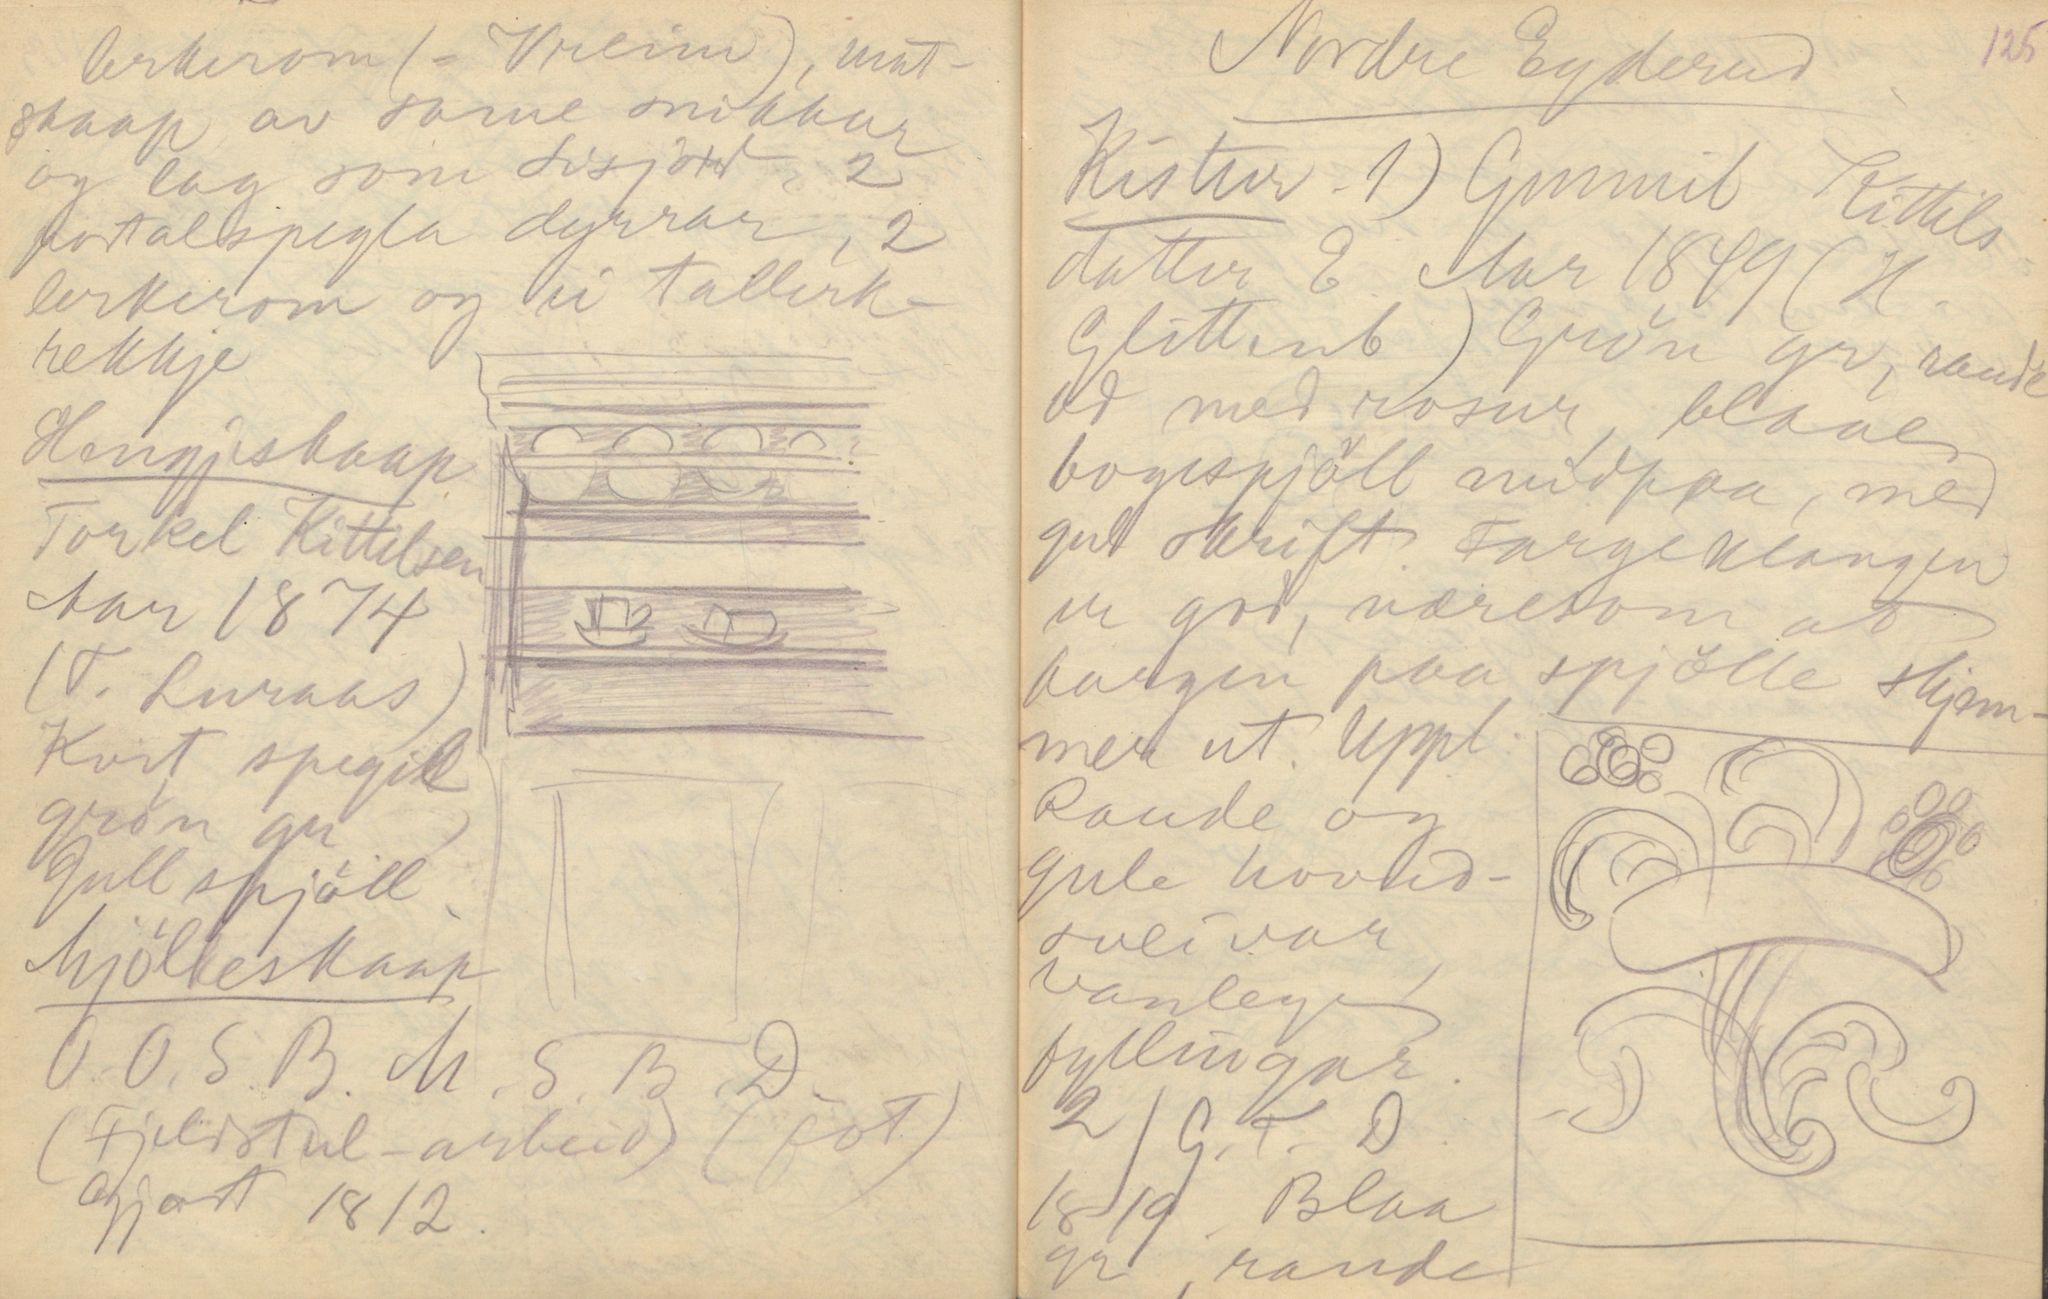 lerkerom (= Vreim), mat-
skaap av same snikkar
og lag som Sisjord, 2
portalspegla dyrrar, 2
lerkerom og ei tallerk-
rekkje
Hengjeskaap
Torkel Kittilsen
Aar 1874
(T. Luraas)
Kvit spegill
grön gr,
Gull spjöll.
Mjölkeskaap
O. O. S. B. M. S. B. D.
(Fjeldstul-arbeid) (föt)
Gjort 1812.
125
Nordre Eyderud
Kistur. 1) Gunnil Kittils
datter E. Aar 1849 (H.
Glittenb) Grön gr, raude
ad med rosur, blaae
bogespjöll midpaa, med
gul skrift. Fargeklangen
er god, næresom at
fargen paa spjölle skjem-
mer ut. Uppl.
Raude og
gule hovud-
sveivar,
Vanlege
fyllingar.
2/ G. T. D
1819. Blaa
gr, raude